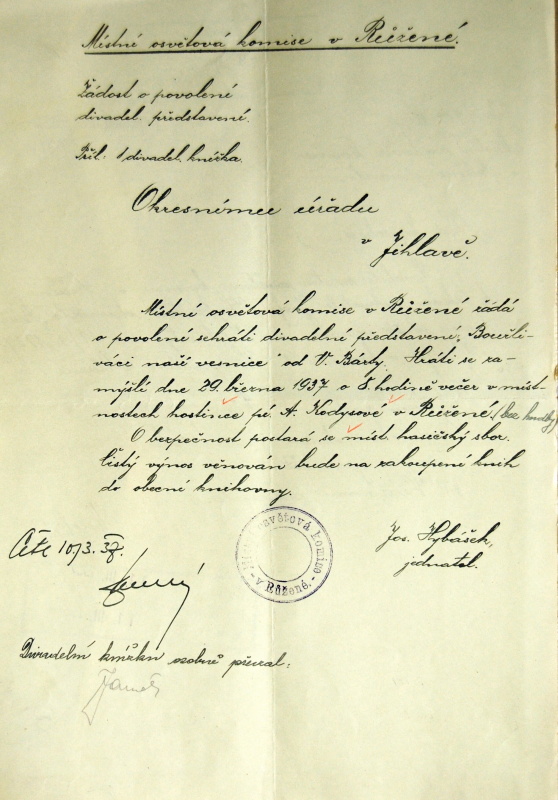 Místní osvětová komise v Růžené.
Žádost o povolení
divadel. představení.
Příl: 1 divadel. knížka.
Okresnímu úřadu
v Jihlavě.
Místní osvětová komise v Růžené žádá
o povolení sehráti divadelní představení „Bouřli-
váci naší vesnice" od V. Bárty. Hráti se za-
mýšlí dne 29. března 1937 o 8. hodině večer v míst-
nostech hostince pí. A. Kodysové v Růžené.
O bezpečnost postará se míst. hasičský sbor.
Čistý výnos věnován bude na zakoupení knih
do obecní knihovny.
Místní osvětová komise
v Růžené.
Jos. Hybášek,
jednatel.
10/3. 37.
Divadelní knížku osobně převzal: